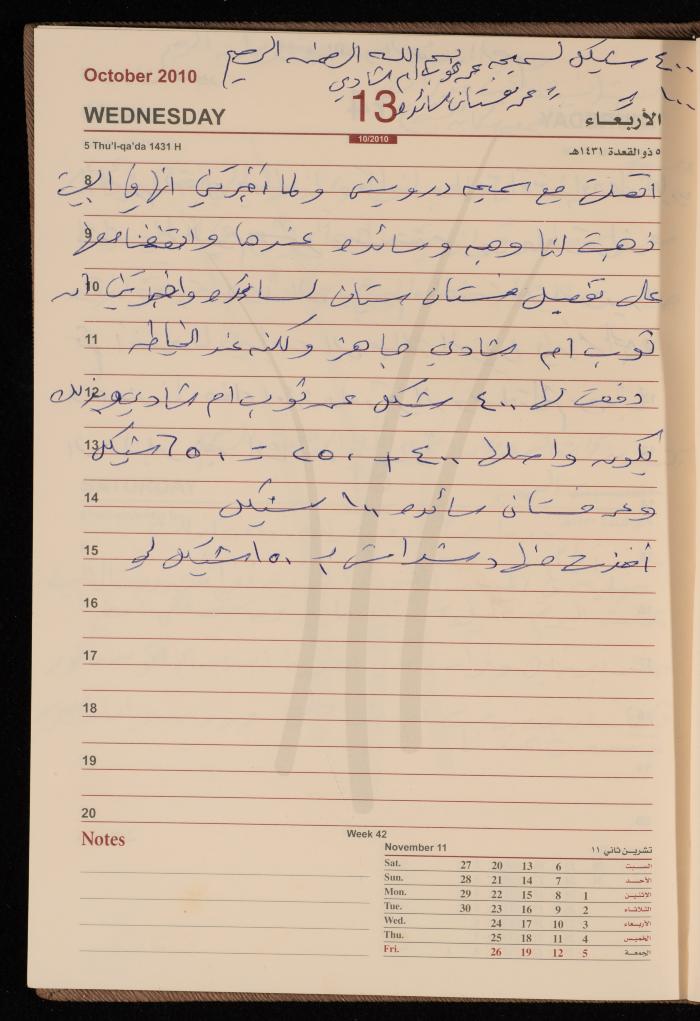 بسم الله الرحمن الرحيم
٤٠٠ شيكل لسميحه عن ثوب ام شادي
١٠٠ " عن فستان سائده
October 2010
WEDNESDAY
13
الأربعاء
5 Thu'l-qa'da 1431 H
10/2010
٥ ذو القعدة ١٤٣١هـ
8 اتصلت مع سميحه درويش ولما أخبرتني انها في البيت
9 ذهبت انا وهبه وسائده عندها واتفقنا معها
10 على تفصيل فستان ستان لسائده واخبرتني ان
11 ثوب ام شادي جاهز ولكنه عند الخياطه
12 دفعت لها ٤٠٠ شيكل عن ثوب ام شادي وبذلك
13 يكون واصلها ٤٠٠ + ٢٥٠ = ٦٥٠ شيكل
14 وعن فستان سائده ١٠٠ شيكل
15 أخذت منها شدات ب ١٥٠ شيكل لي
16
17
18
19
20
Notes
Week 42
November 11 تشرين ثاني ١١
Sat. 27 20 13 6 السبت
Sun. 28 21 14 7 الأحد
Mon. 29 22 15 8 1 الاثنين
Tue. 30 23 16 9 2 الثلاثاء
Wed. 24 17 10 3 الأربعاء
Thu. 25 18 11 4 الخميس
Fri. 26 19 12 5 الجمعة